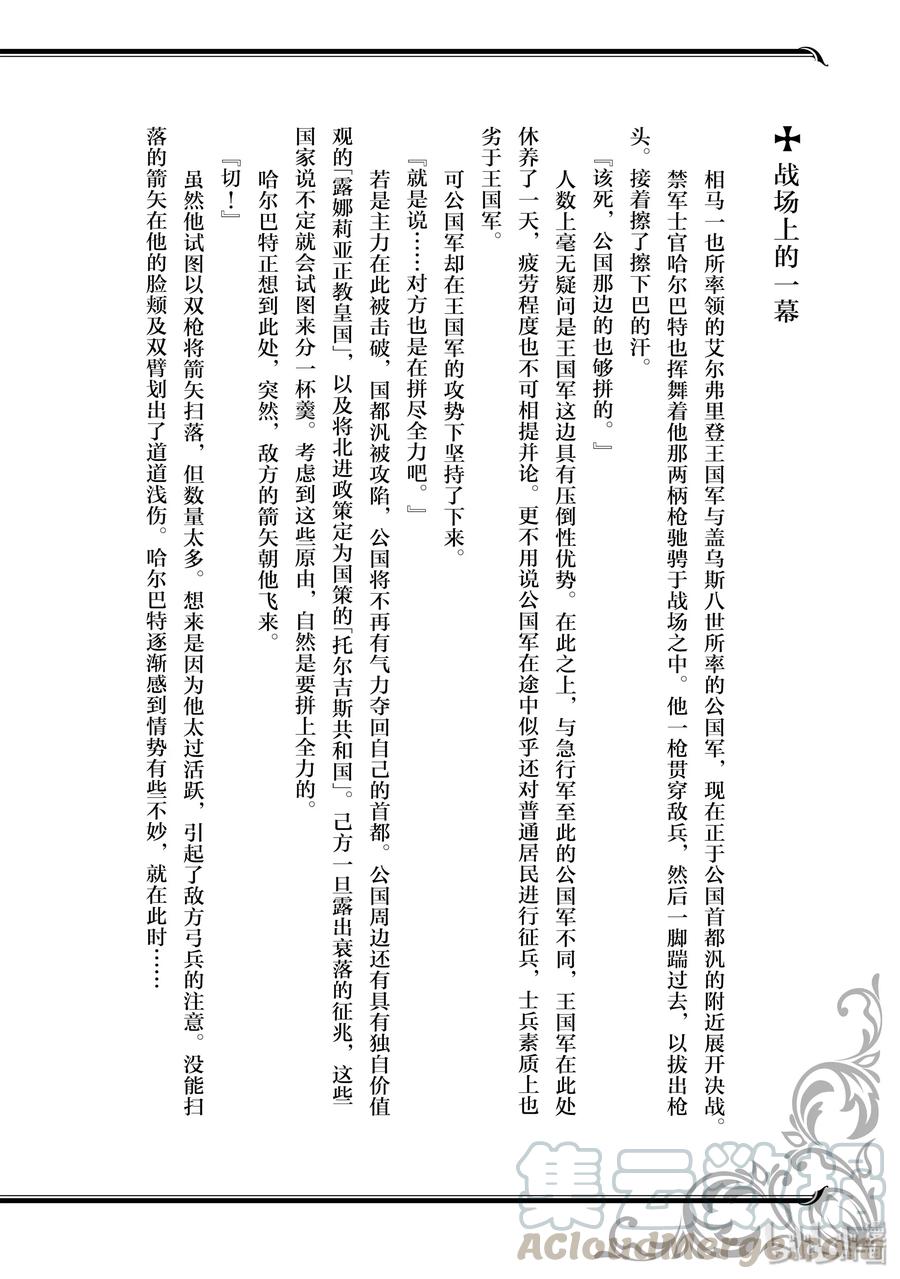 ✠ 战场上的一幕
相马一也所率领的艾尔弗里登王国军与盖乌斯八世所率的公国军，现在正于公国首都汎的附近展开决战。
禁军士官哈尔巴特也挥舞着他那两柄枪驰骋于战场之中。他一枪贯穿敌兵，然后一脚踹过去，以拔出枪
头。接着擦了擦下巴的汗。
『该死，公国那边的也够拼的。』
人数上毫无疑问是王国军这边具有压倒性优势。在此之上，与急行军至此的公国军不同，王国军在此处
休养了一天，疲劳程度也不可相提并论。更不用说公国军在途中似乎还对普通居民进行征兵，士兵素质上也
劣于王国军。
可公国军却在王国军的攻势下坚持了下来。
『就是说……对方也是在拼尽全力吧。』
若是主力在此被击破，国都汎被攻陷，公国将不再有气力夺回自己的首都。公国周边还有具有独自价值
观的「露娜莉亚正教皇国」，以及将北进政策定为国策的「托尔吉斯共和国」。己方一旦露出衰落的征兆，这些
国家说不定就会试图来分一杯羹。考虑到这些原由，自然是要拼上全力的。
哈尔巴特正想到此处，突然，敌方的箭矢朝他飞来。
『切！』
虽然他试图以双枪将箭矢扫落，但数量太多。想来是因为他太过活跃，引起了敌方弓兵的注意。没能扫
落的箭矢在他的脸颊及双臂划出了道道浅伤。哈尔巴特逐渐感到情势有些不妙，就在此时……
集云数据
ACloudMerge.com